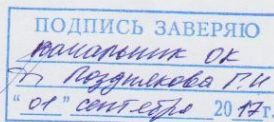 ПОДПИСЬ ЗАВЕРЯЮ
начальник ОК
Позднякова Г.И
"01" сентября 2017г.